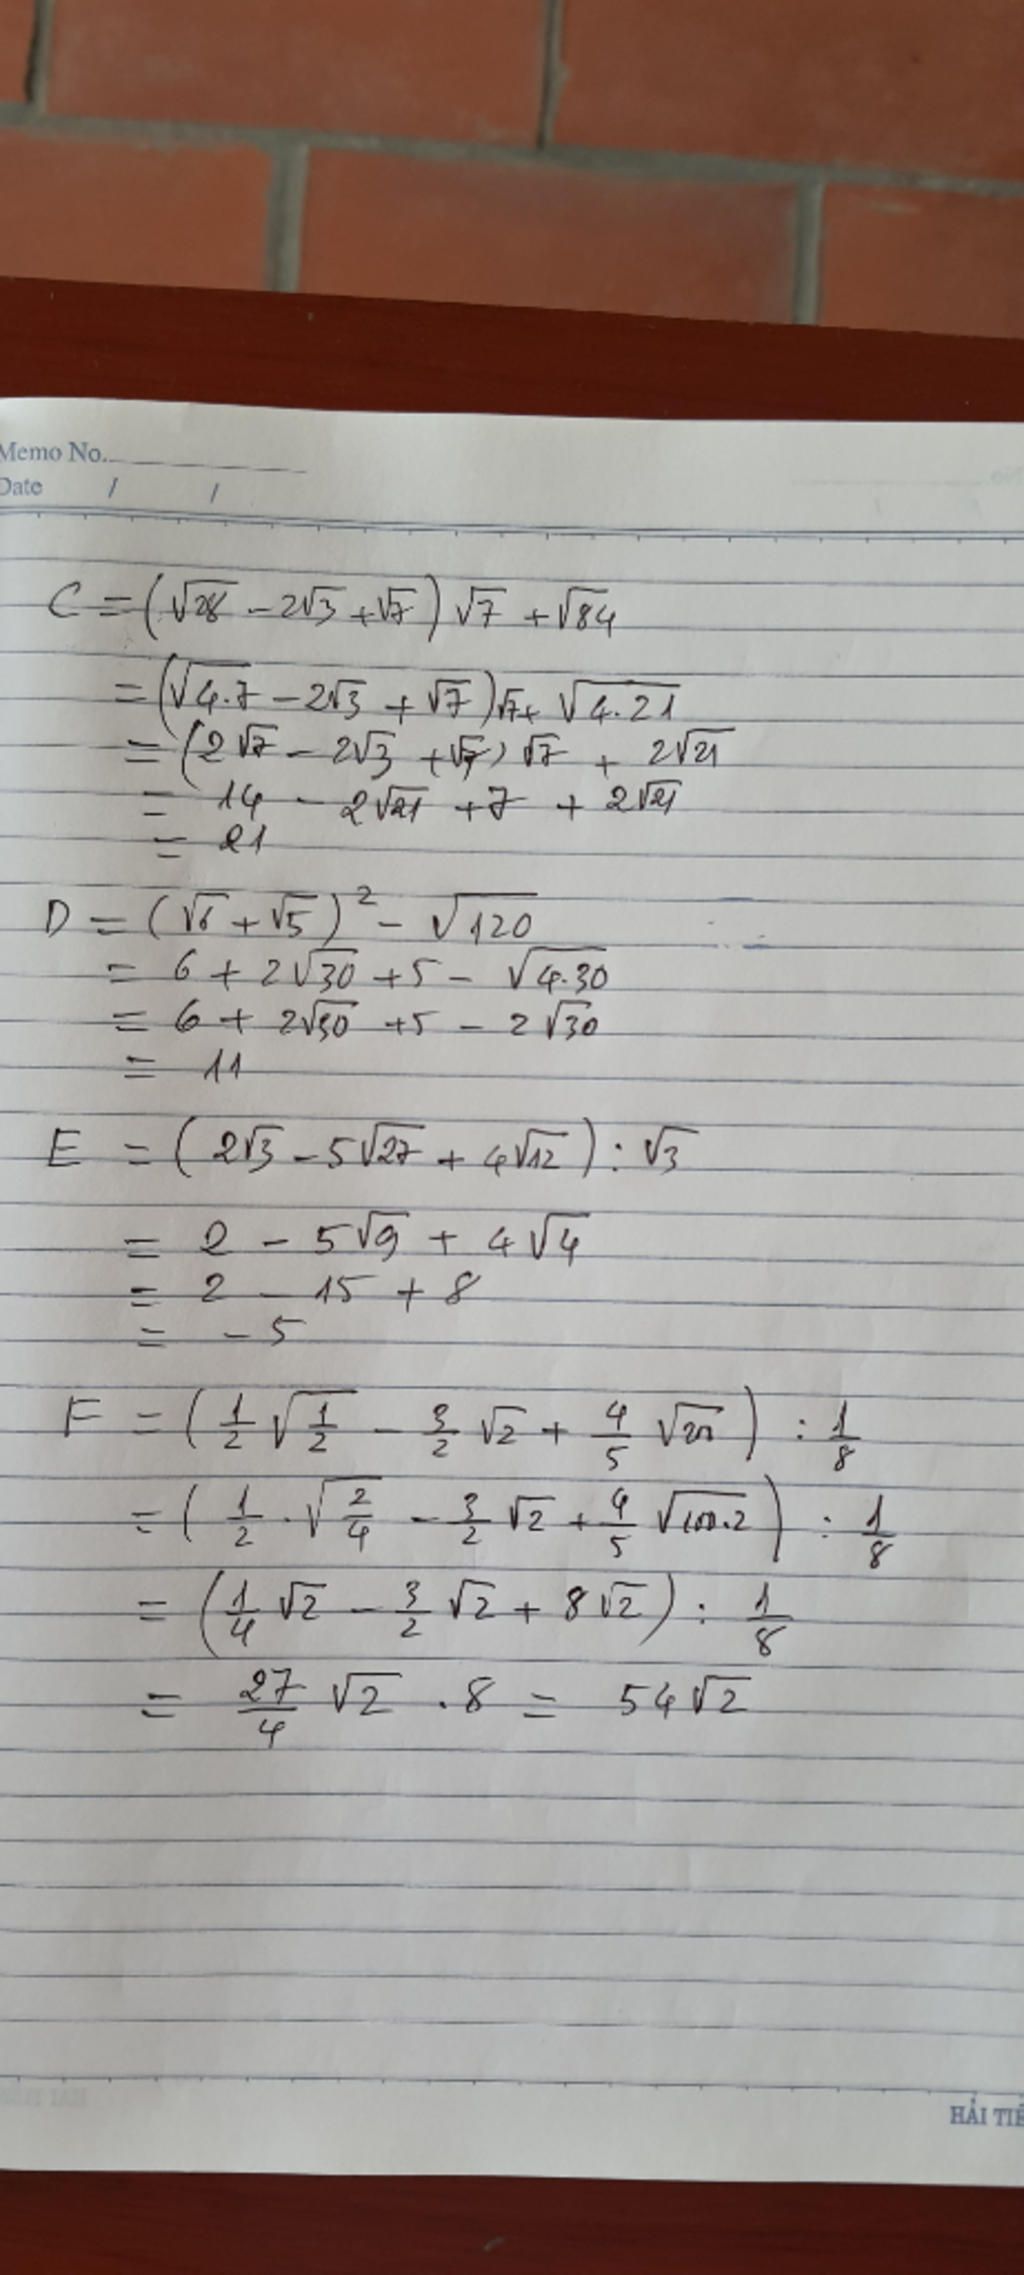 Memo No.
Date / /
C = (√28 - 2√3 + √7) √7 + √84
= (√4.7 - 2√3 + √7)√7 + √4.21
= (2√7 - 2√3 + √7) √7 + 2√21
= 14 - 2√21 + 7 + 2√21
= 21
D = (√6 + √5)² - √120
= 6 + 2√30 + 5 - √4.30
= 6 + 2√30 + 5 - 2√30
= 11
E = (2√3 - 5√27 + 4√12) : √3
= 2 - 5√9 + 4√4
= 2 - 15 + 8
= - 5
F = (1/2 √1/2 - 3/2 √2 + 4/5 √200) : 1/8
= (1/2 . √2/4 - 3/2 √2 + 4/5 √100.2) : 1/8
= (1/4 √2 - 3/2 √2 + 8√2) : 1/8
= 27/4 √2 . 8 = 54√2
HẢI TIẾ